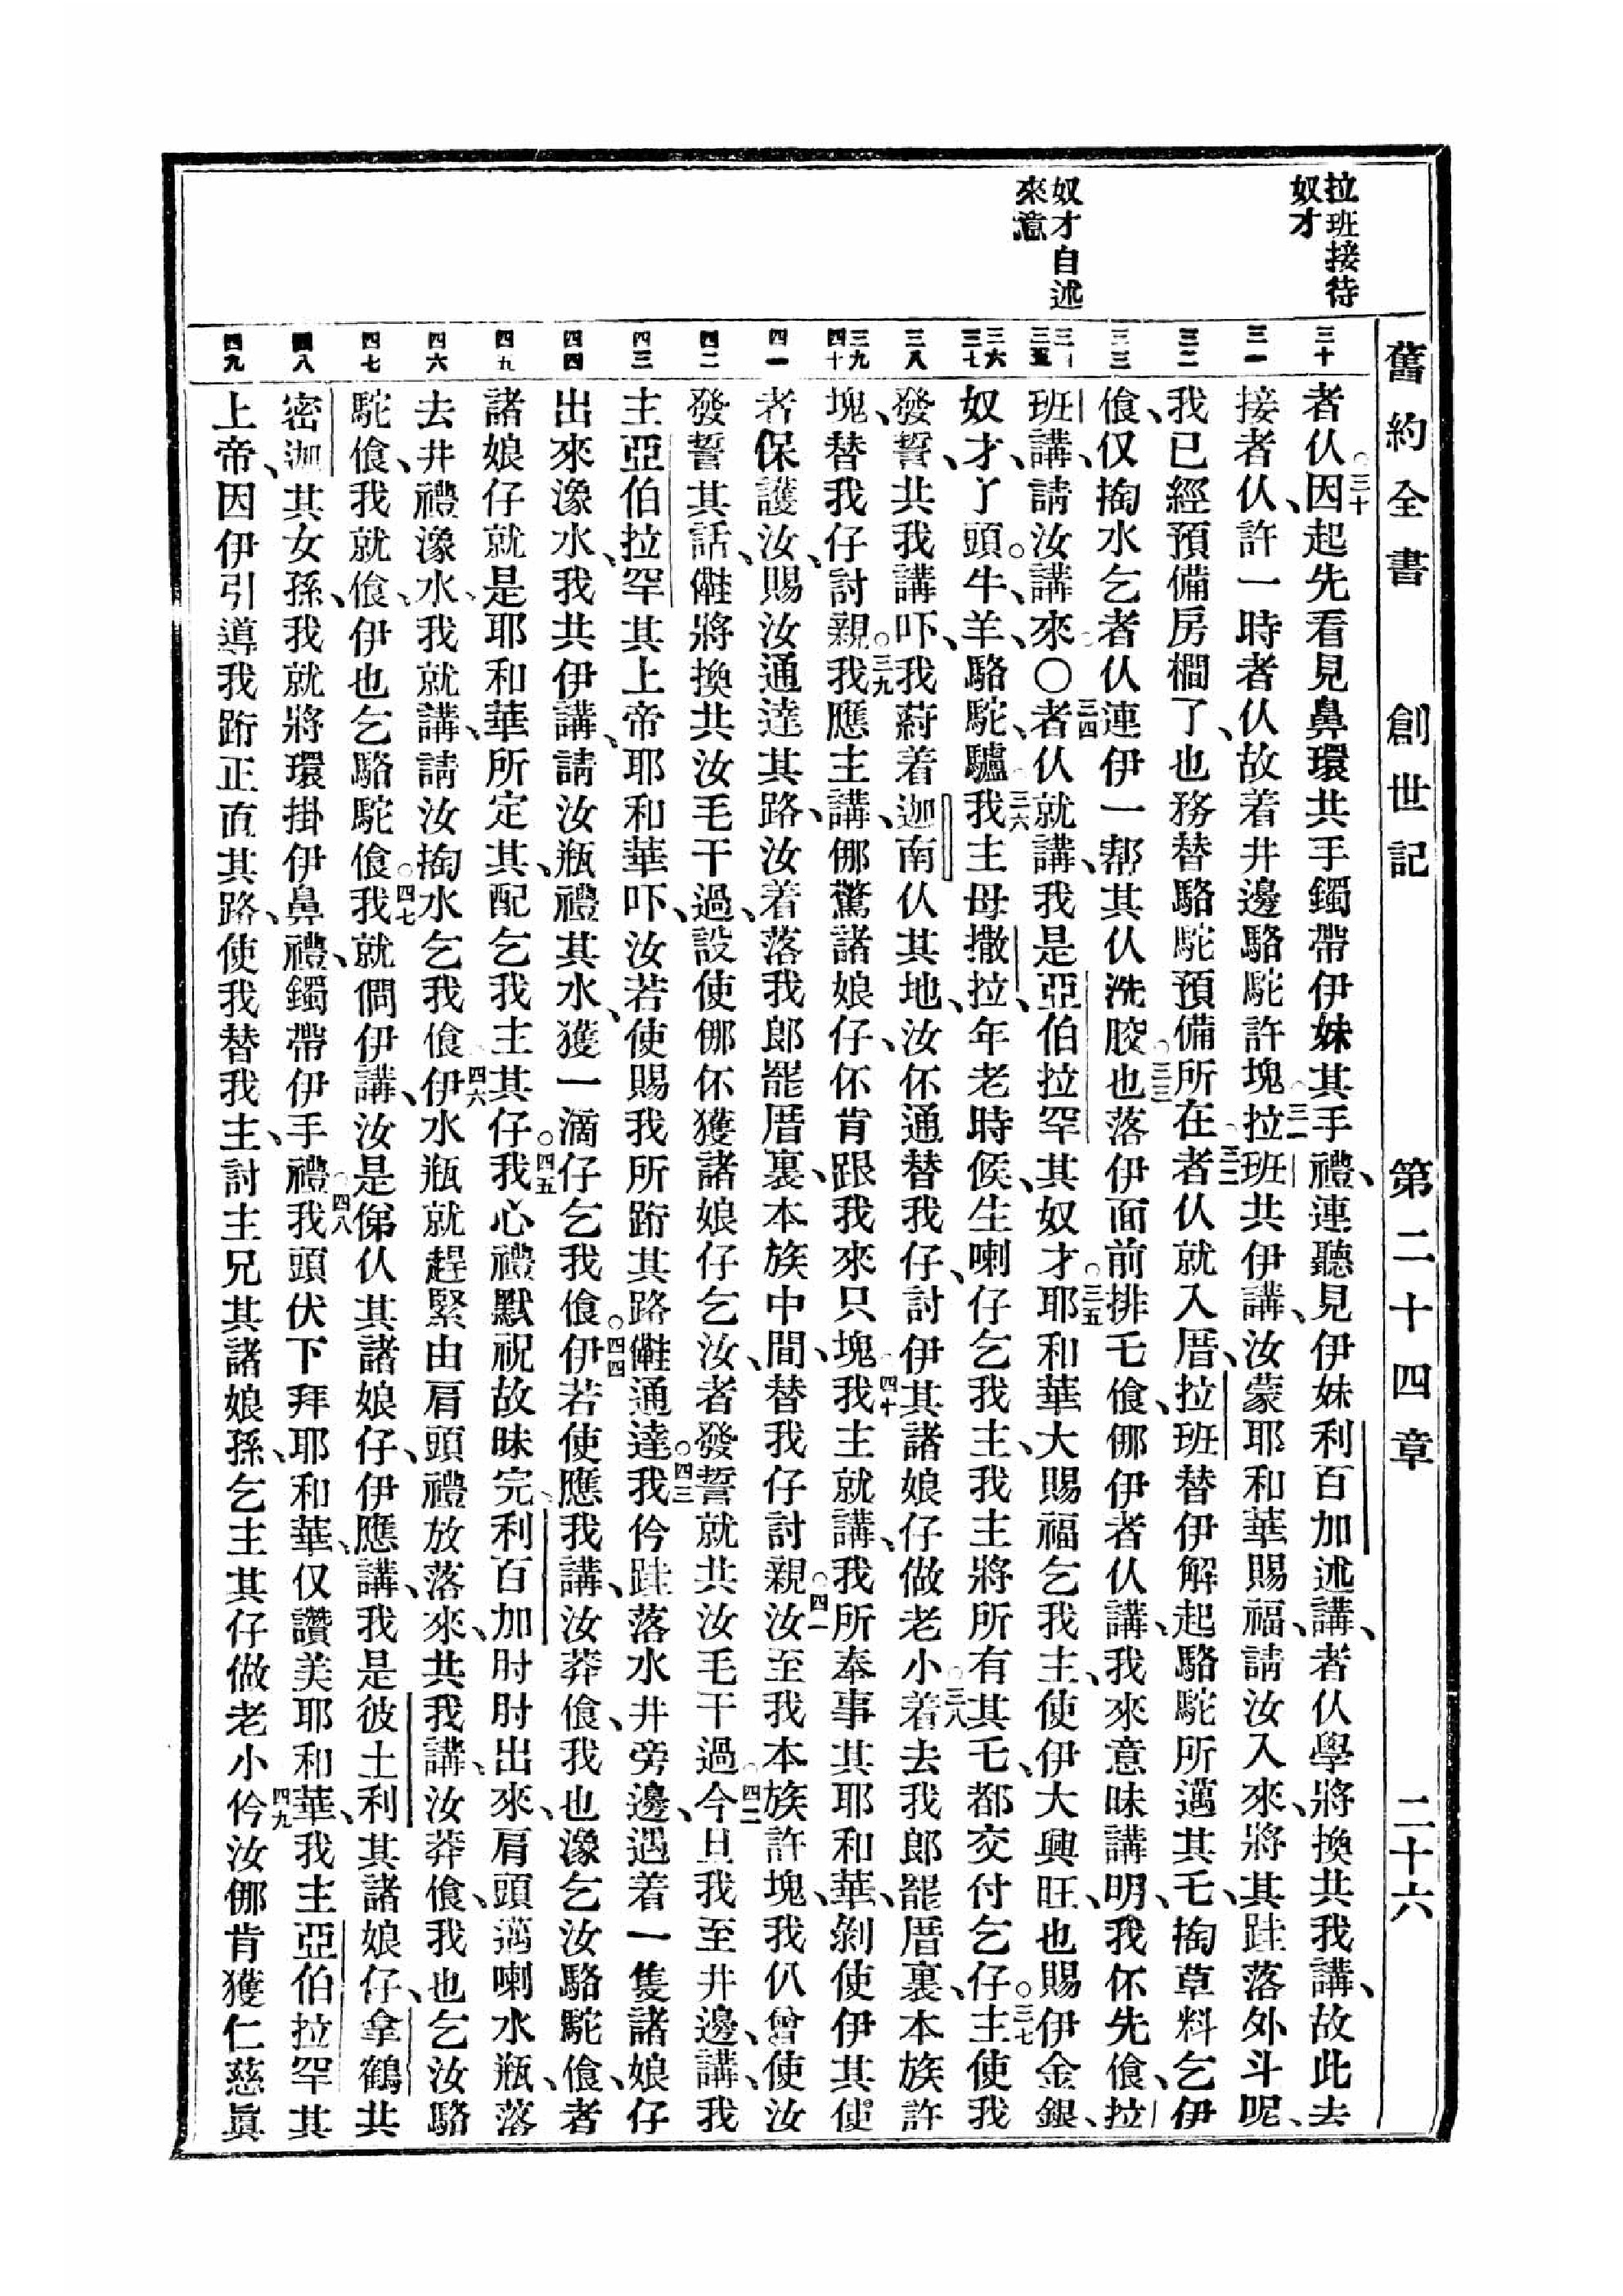 舊約全書 創世記 第二十四章 二十六
拉班接待
奴才
奴才自述
來意
三十
三一
三二
三三
三五
三六
三七
三八
三九
四十
四一
四二
四三
四四
四五
四六
四七
四八
四九
者仈、○三十因起先看見鼻環共手鐲帶伊妹其手禮、連聽見伊妹利百加述講、者仈學將換共我講、故此去
接者仈、許一時者仈故着井邊駱駝許塊○三一拉班共伊講、汝蒙耶和華賜福、請汝入來、將其跬落外斗呢、
我已經預備房櫊了、也務替駱駝預備所在○三二者仈就入厝、拉班替伊解起駱駝所邁其乇、掏草料乞伊
飡、仅掏水乞者仈連伊一幫其仈洗骹○三三也落伊面前排乇飡、倻伊者仈講、我來意昧講明、我伓先飡、拉
班講、請汝講來○〇三四者仈就講、我是亞伯拉罕其奴才○三五耶和華大賜福乞我主、使伊大興旺、也賜伊金銀、
奴才、丫頭、牛羊、駱駝、驢○三六我主母撒拉、年老時候、生喇仔乞我主、我主將所有其乇、都交付乞仔○三七主使我
發誓、共我講吓、我蔚着迦南仈其地、汝伓通替我仔、討伊其諸娘仔做老小○三八着去我郎罷厝裏、本族許
塊、替我仔討親○三九我應主講、倻驚諸娘仔、伓肯跟我來只塊○四十我主就講、我所奉事其耶和華、剃使伊其使
者保護汝、賜汝通達其路、汝着落我郎罷厝裏、本族中間、替我仔討親○四一汝至我本族許塊、我仈曾使汝
發誓其話、儺將換共汝乇干過、設使倻伓獲諸娘仔乞汝、者發誓就共汝乇干過○四二今旦我至井邊、講、我
主亞伯拉罕其上帝耶和華吓、汝若使賜我所跴其路儺通達○四三我仱跬落水井旁邊、遇着一隻諸娘仔
出來潒水、我共伊講、請汝瓶禮其水、獲一滴仔乞我飡○四四伊若使應我講、汝莽飡、我也潒乞汝駱駝飡、者
諸娘仔就是耶和華所定其、配乞我主其仔○四五我心禮默祝故昧完、利百加肘肘出來、肩頭邁喇水瓶、落
去井禮潒水、我就講、請汝掏水乞我飡○四六伊水瓶就趕緊由肩頭禮放落來、共我講、汝莽飡、我也乞汝駱
駝飡、我就飡、伊也乞駱駝飡○四七我就僩伊講、汝是俤仈其諸娘仔、伊應講、我是彼土利其諸娘仔、拿鶴共
密迦其女孫、我就將環掛伊鼻禮、鐲帶伊手禮○四八我頭伏下拜耶和華、仅讚美耶和華、我主亞伯拉罕其
上帝、因伊引導我跴正直其路、使我替我主、討主兄其諸娘孫、乞主其仔做老小○四九仱汝倻肯獲仁慈眞